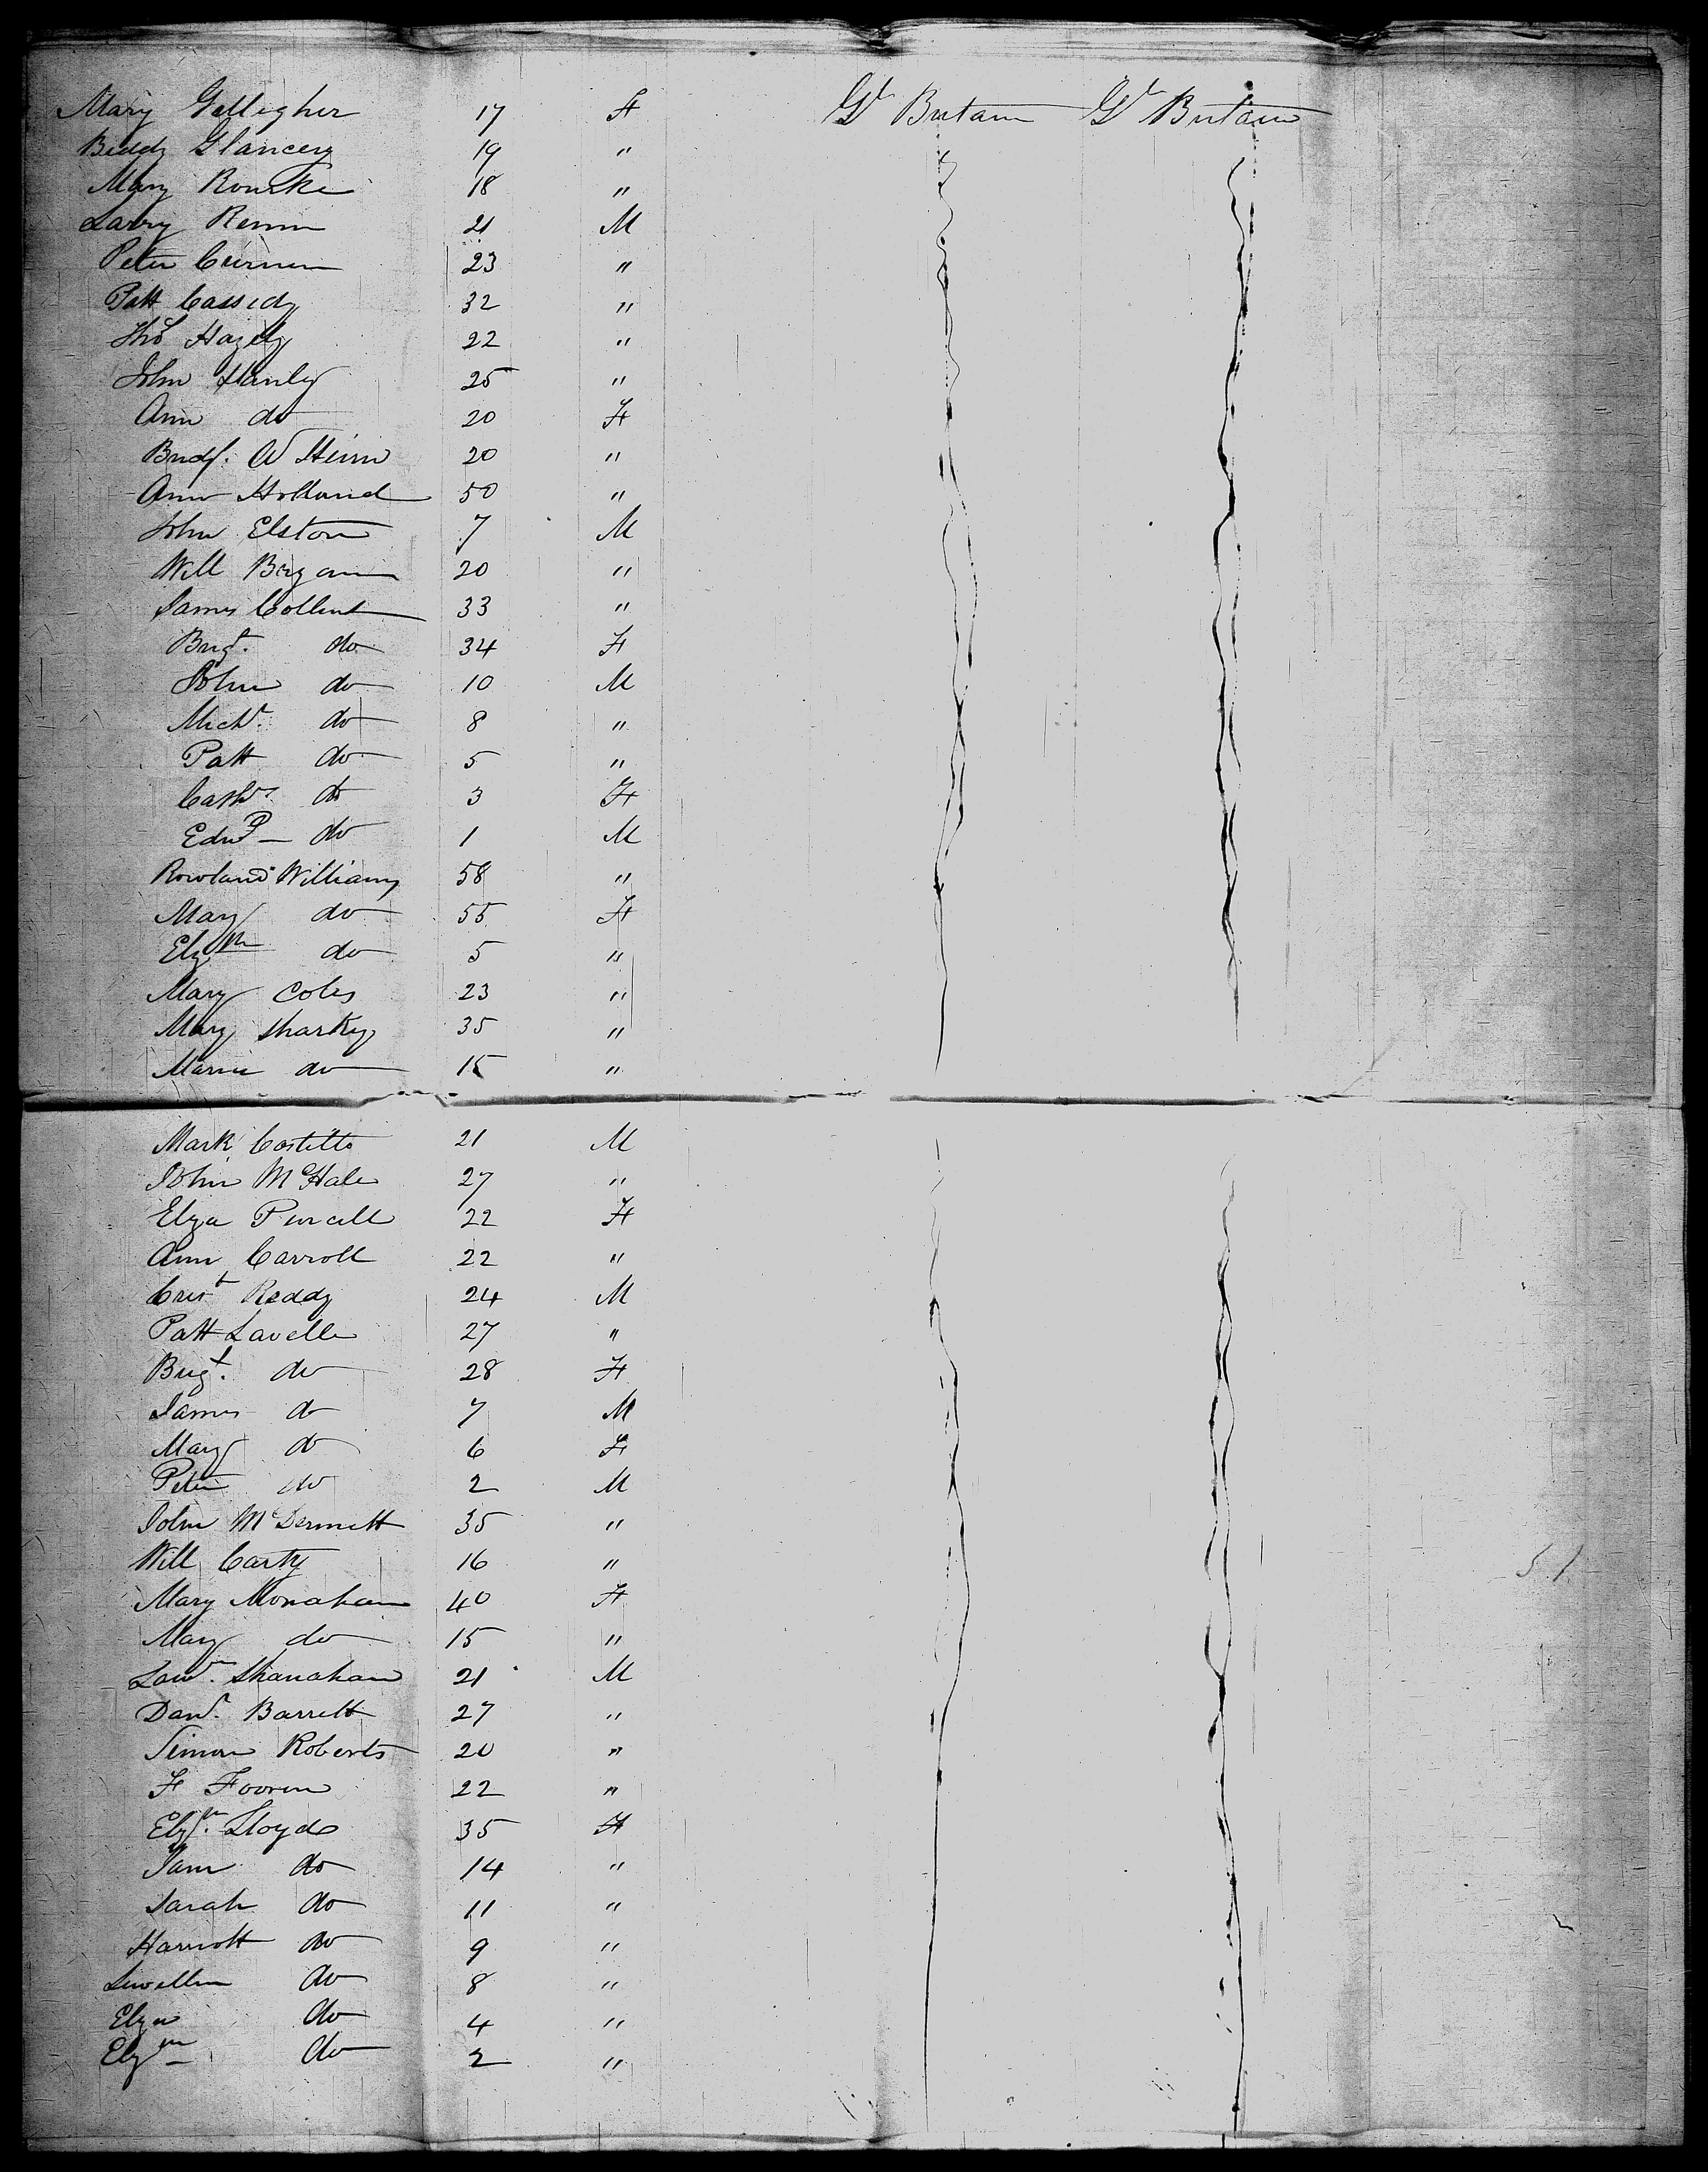 Mary Gallegher 17 F Gt Britain Gt Britain
Biddy Glancey 19 "
Mary Rourke 18 "
Larry Renn 21 M
Peter Curnen 23 "
Patt Cassidy 32 "
Thos Hazely 22 "
John Hanley 25 "
Ann do 20 F
20 "
Ann Holland 50 "
John Elston 7 M
Will Bregan 20 "
James Collent 33 "
Brigt. do 34 F
John do 10 M
Michl. do 8 "
Patt do 5 "
Cathr. do 3 F
Edwd — do 1 M
Rowland Williams 58 "
Mary do 55 F
Elzth do 5 "
Mary Coles 23 "
Mary Sharky 35 "
Maria do 15 "
Mark Costillo 21 M
John McHale 27 "
Elza Purcell 22 F
Ann Carroll 22 "
Crist Reddy 24 M
Patt Lavelle 27 "
Brigt. do 28 F
James do 7 M
Mary do 6 F
Peter do 2 M
John McDermott 35 "
Will Carty 16 "
Mary Monahan 40 F
Mary do 15 "
Lawn. Shanahan 21 M
Danl. Barrett 27 "
Simon Roberts 20 "
F 22 "
Elzth. Lloyd 35 F
Jane do 14 "
Sarah do 11 "
Harriott do 9 "
Lewellen do 8 "
Elza do 4 "
Elzth do 2 "